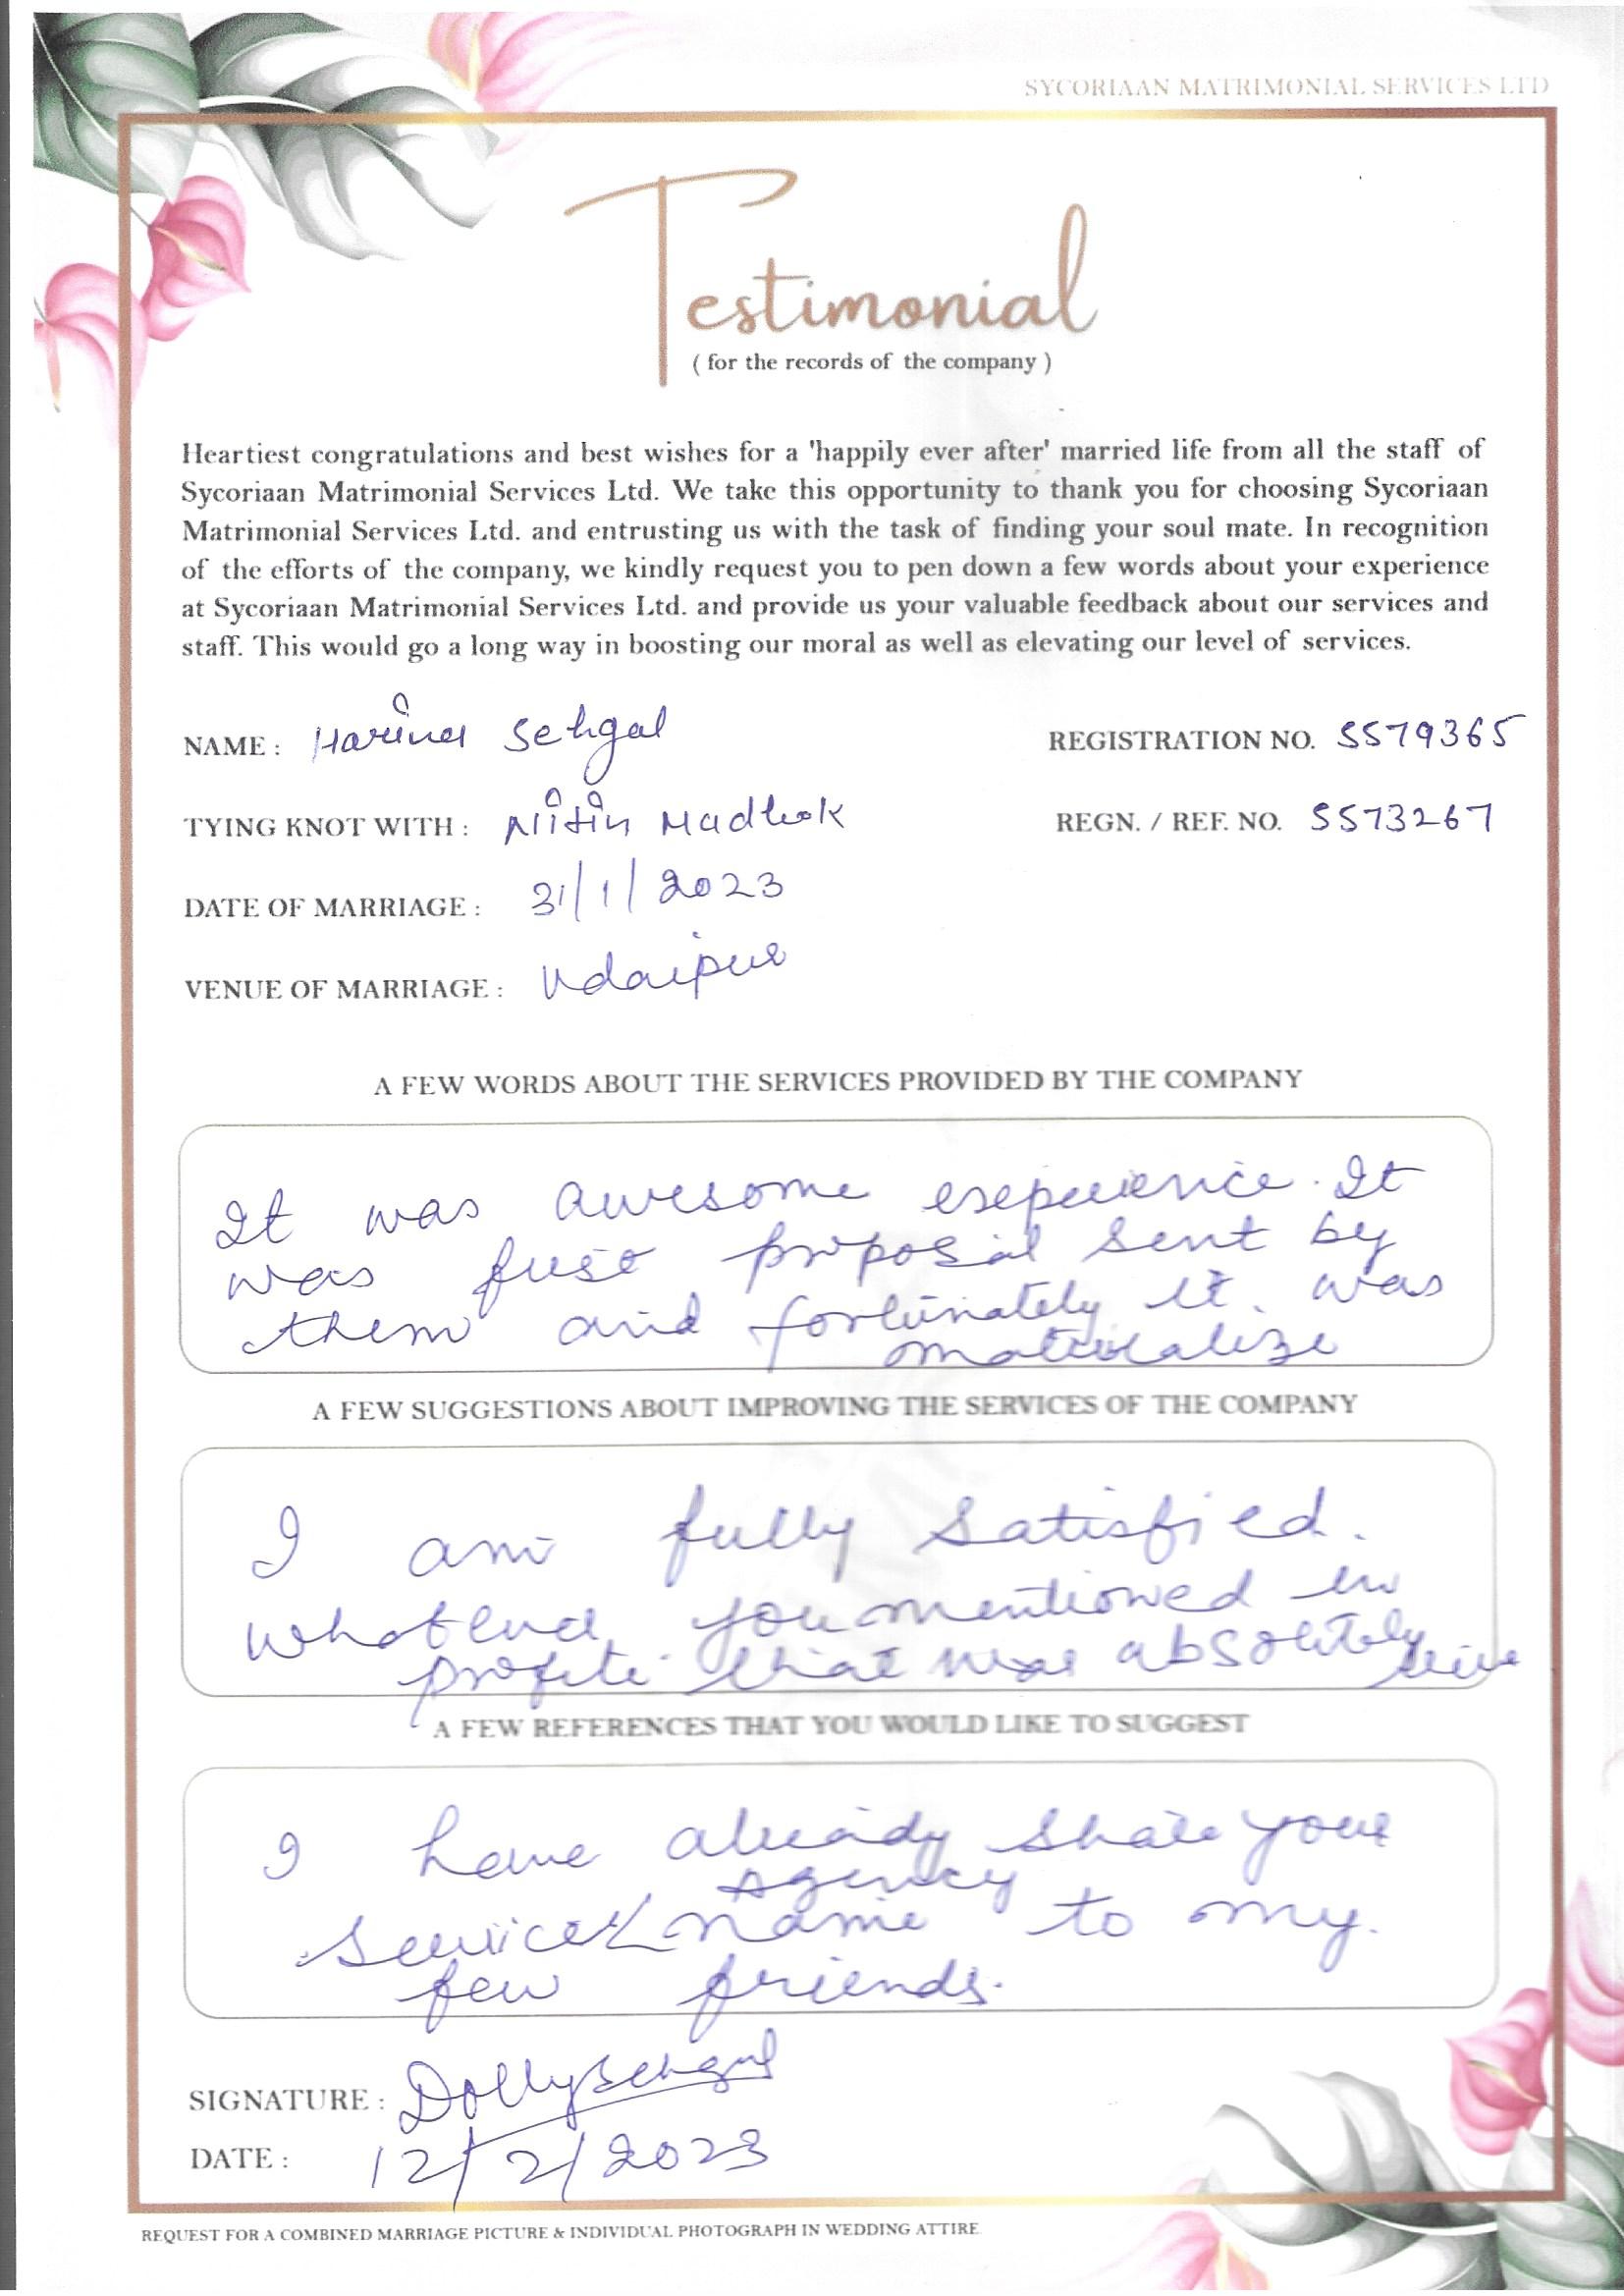 SYCORIAAN MATRIMONIAL SERVICES LTD
Testimonial
( for the records of the company )
Heartiest congratulations and best wishes for a 'happily ever after' married life from all the staff of
Sycoriaan Matrimonial Services Ltd. We take this opportunity to thank you for choosing Sycoriaan
Matrimonial Services Ltd. and entrusting us with the task of finding your soul mate. In recognition
of the efforts of the company, we kindly request you to pen down a few words about your experience
at Sycoriaan Matrimonial Services Ltd. and provide us your valuable feedback about our services and
staff. This would go a long way in boosting our moral as well as elevating our level of services.
NAME : Sehgal REGISTRATION NO. SS79365
TYING KNOT WITH : Nitin Madhok REGN. / REF. NO. SS73267
DATE OF MARRIAGE : 31/1/2023
VENUE OF MARRIAGE : Udaipur
A FEW WORDS ABOUT THE SERVICES PROVIDED BY THE COMPANY
It was awesome experience. It
was first proposal sent by
them and fortunately it was
materialize
A FEW SUGGESTIONS ABOUT IMPROVING THE SERVICES OF THE COMPANY
I am fully satisfied.
whatever you mentioned in
profile that was absolutely
true
A FEW REFERENCES THAT YOU WOULD LIKE TO SUGGEST
I have already share your
Agency
service name to my
few friends.
SIGNATURE : Dolly Sehgal
DATE : 12/2/2023
REQUEST FOR A COMBINED MARRIAGE PICTURE & INDIVIDUAL PHOTOGRAPH IN WEDDING ATTIRE